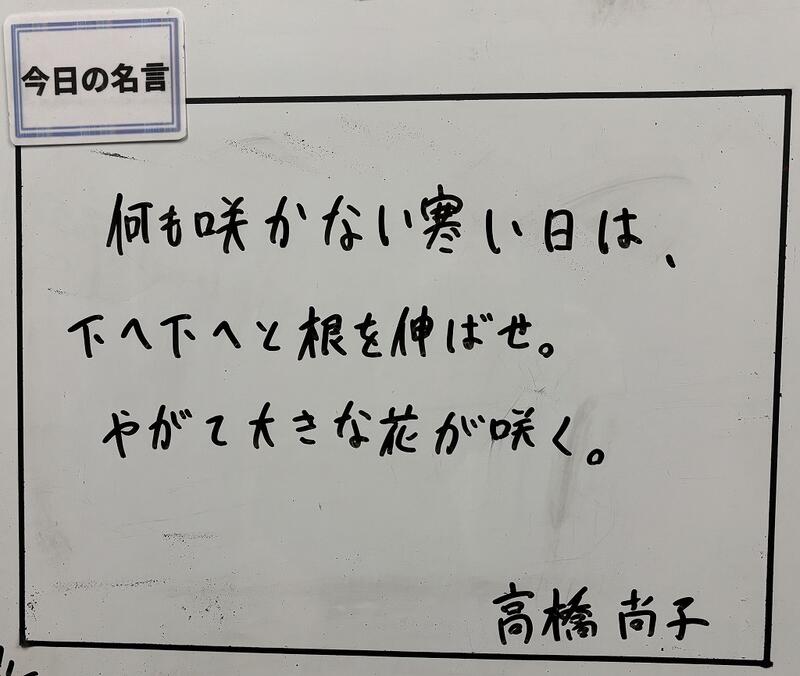 今日の名言
何も咲かない寒い日は、
下へ下へと根を伸ばせ。
やがて大きな花が咲く。
高橋尚子